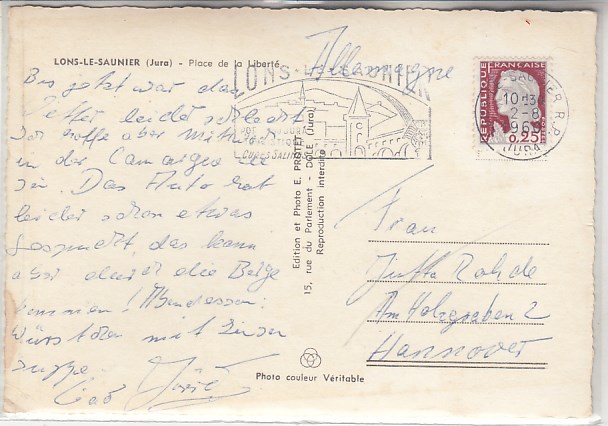 LONS-LE-SAUNIER (Jura) - Place de la Liberté
Allemagne
LONS-LE-SAUNIER
Bis jetzt war das
Wetter leider schlecht
hoffe aber
in der Camargue
sein. Das Auto hat
leider schon etwas
gespuckt, das kann
aber durch die Berge
kommen! Abendessen:
Würstchen mit Linsen
suppe.
Edition et Photo E. PROTET - DOLE (Jura)
15, rue du Parlement -
Reproduction interdite
REPUBLIQUE FRANÇAISE
0,25
10H30
2-8
196
JURA
Frau
Jutta Rohde
Am Holzgraben 2
Hannover
Photo couleur Véritable